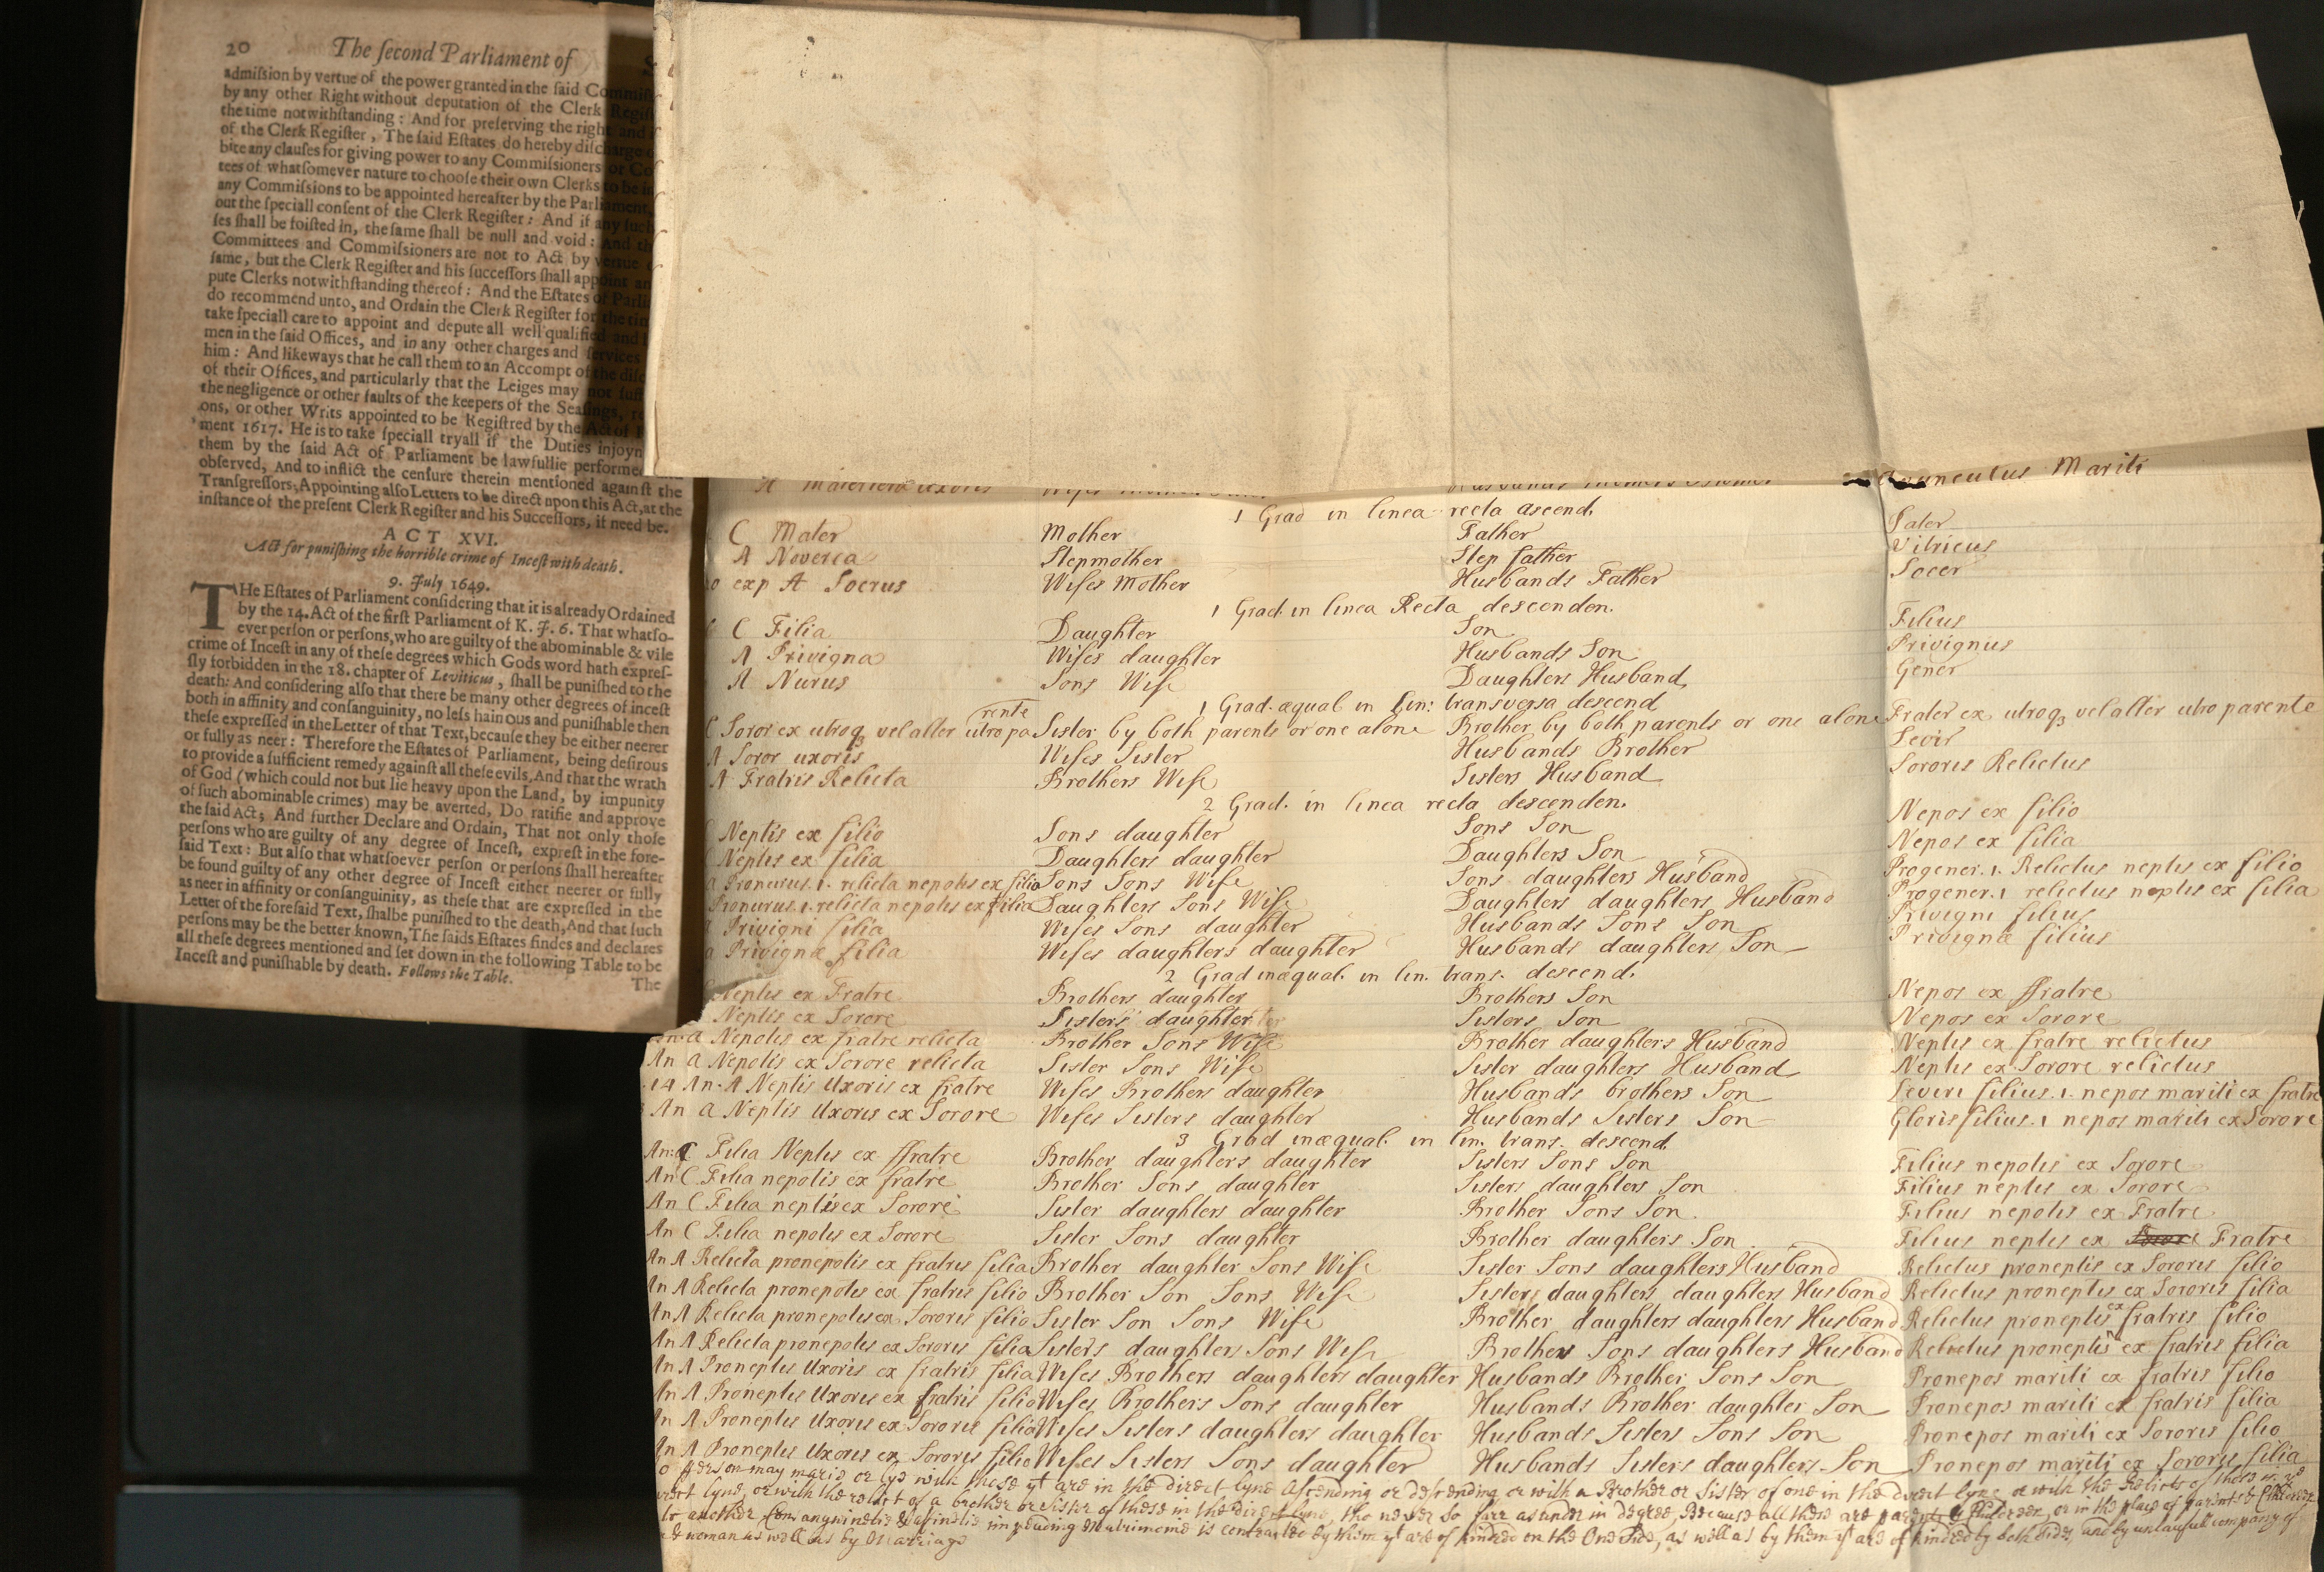 20 The ſecond Parliament of
admiſsion by vertue of the power granted in the ſaid Commiſ
by any other Right without deputation of the Clerk Regiſ
the time notwithſtanding: And for preſerving the right and
of the Clerk Regiſter, The ſaid Eſtates do hereby diſcharge
bite any clauſes for giving power to any Commiſsioners or Co
tees of whatſomever nature to chooſe their own Clerks to be in
any Commiſsions to be appointed hereafter by the Parliament,
out the ſpeciall conſent of the Clerk Regiſter: And if any ſuch
ſes ſhall be foiſted in, the ſame ſhall be null and void: And th
Committees and Commiſsioners are not to Act by vertue
ſame, but the Clerk Regiſter and his ſucceſſors ſhall appoint an
pute Clerks notwithſtanding thereof: And the Eſtates of Parli
do recommend unto, and Ordain the Clerk Regiſter for the tim
take ſpeciall care to appoint and depute all well qualified and
men in the ſaid Offices, and in any other charges and ſervices
him: And likeways that he call them to an Accompt of the diſc
of their Offices, and particularly that the Leiges may not ſuſt
the negligence or other faults of the keepers of the Seaſings, re
ons, or other Writs appointed to be Regiſtred by the Act of
ment 1617. He is to take ſpeciall tryall if the Duties injoyn
them by the ſaid Act of Parliament be lawfullie performed
obſerved, And to inflict the cenſure therein mentioned againſt the
Tranſgreſſors, Appointing alſo Letters to be direct upon this Act, at the
inſtance of the preſent Clerk Regiſter and his Succeſſors, if need be.
ACT XVI.
Act for puniſhing the horrible crime of Inceſt with death.
9. July 1649.
THe Eſtates of Parliament conſidering that it is already Ordained
by the 14. Act of the firſt Parliament of K. J. 6. That whatſo-
ever perſon or perſons, who are guilty of the abominable & vile
crime of Inceſt in any of theſe degrees which Gods word hath expreſ-
ſly forbidden in the 18. chapter of Leviticus, ſhall be puniſhed to the
death: And conſidering alſo that there be many other degrees of inceſt
both in affinity and conſanguinity, no leſs hainous and puniſhable then
theſe expreſſed in the Letter of that Text, becauſe they be either neerer
or fully as neer: Therefore the Eſtates of Parliament, being deſirous
to provide a ſufficient remedy againſt all theſe evils, And that the wrath
of God (which could not but lie heavy upon the Land, by impunity
of ſuch abominable crimes) may be averted, Do ratifie and approve
the ſaid Act; And further Declare and Ordain, That not only thoſe
perſons who are guilty of any degree of Inceſt, expreſt in the fore-
ſaid Text: But alſo that whatſoever perſon or perſons ſhall hereafter
be found guilty of any other degree of Inceſt either neerer or fully
as neer in affinity or conſanguinity, as theſe that are expreſſed in the
Letter of the foreſaid Text, ſhalbe puniſhed to the death, And that ſuch
perſons may be the better known, The ſaids Eſtates findes and declares
all theſe degrees mentioned and ſet down in the following Table to be
Inceſt and puniſhable by death. Follows the Table.
The
Avunculus Mariti
1 Grad in linea recta ascend.
C Mater Mother Father Pater
A Noverca Stepmother Step father Vitricus
exp A Socrus Wifes Mother Husbands Father Socer
1 Grad. in linea Recta descenden.
C Filia Daughter Son Filius
A Privigna Wifes daughter Husbands Son Privignius
A Nurus Sons Wife Daughters Husband Gener
1 Grad. æqual in Lin: transversa descend
rente
C Soror ex utroq3 vel alter utro pa Sister by both parents or one alone Brother by both parents or one alone Frater ex utroq3 vel alter utro parente
A Soror uxoris Wifes Sister Husbands Brother Levir
A Fratris Relicta Brothers Wife Sisters Husband Sororis Relictus
2 Grad. in linea recta descenden.
Neptis ex filio Sons daughter Sons Son Nepos ex filio
Neptis ex filia Daughters daughter Daughters Son Nepos ex filia
a Pronurus. 1. relicta nepotis ex filio Sons Sons Wife Sons daughters Husband Progener. 1. Relictus neptis ex filio
Pronurus. 1. relicta nepotis ex filia Daughters Sons Wife Daughters daughters Husband Progener. 1 relictus neptis ex filia
Privigni filia Wifes Sons daughter Husbands Sons Son Privigni filius
a Privignæ filia Wifes daughters daughter Husbands daughters Son Privignæ filius
2 Grad inæqual. in lin. trans. descend.
Neptis ex Fratre Brothers daughter Brothers Son Nepos ex ffratre
Neptis ex Sorore Sisters daughter Sisters Son Nepos ex Sorore
a Nepotis ex fratre relicta Brother Sons Wife Brother daughters Husband Neptis ex fratre relictus
An a Nepotis ex Sorore relicta Sister Sons Wife Sister daughters Husband Neptis ex Sorore relictus
14 An. A Neptis Uxoris ex fratre Wifes Brothers daughter Husbands brothers Son Leviri filius. 1. nepos mariti ex fratre
An a Neptis Uxoris ex Sorore Wifes Sisters daughter Husbands Sisters Son Gloris filius. 1 nepos mariti ex Sorore
3 Grad inæqual. in lin. trans. descend.
An: C Filia Neptis ex ffratre Brother daughters daughter Sisters Sons Son Filius nepotis ex Sorore
An C Filia nepotis ex fratre Brother Sons daughter Sisters daughters Son Filius neptis ex Sorore
An C Filia neptis ex Sorore Sister daughters daughter Brother Sons Son Filius nepotis ex Fratre
An C Filia nepotis ex Sorore Sister Sons daughter Brother daughters Son Filius neptis ex Sorore Fratre
An A Relicta pronepotis ex fratris filia Brother daughter Sons Wife Sister Sons daughters Husband Relictus proneptis ex Sororis filio
An A Relicta pronepotis ex fratris filio Brother Son Sons Wife Sisters daughters daughters Husband Relictus proneptis ex Sororis filia
An A Relicta pronepotis ex Sororis filio Sister Son Sons Wife Brother daughters daughters Husband Relictus proneptis ex fratris filio
An A Relicta pronepotis ex Sororis filia Sisters daughters Sons Wife Brothers Sons daughters Husband Relictus proneptis ex fratris filia
An A Proneptis Uxoris ex fratris filia Wifes Brothers daughters daughter Husbands Brother Sons Son Pronepos mariti ex fratris filio
An A Proneptis Uxoris ex fratris filio Wifes Brothers Sons daughter Husbands Brother daughter Son Pronepos mariti ex fratris filia
An A Proneptis Uxoris ex Sororis filia Wifes Sisters daughters daughter Husbands Sisters Sons Son Pronepos mariti ex Sororis filio
An A Proneptis Uxoris ex Sororis filio Wifes Sisters Sons daughter Husbands Sisters daughters Son Pronepos mariti ex Sororis filia
person may marie or lye with these yt are in the direct lyne Ascending or descending or with a Brother or Sister of one in the direct lyne or with the Relicts of these
lyne, or with the relict of a brother or sister of these in the direct lyne, tho never so farr asunder in degree, Because all these are parents & Children, or in the place of parents & Children
to another, Consanguinitie & afinitie impeding Matrimonie is contracted by them yt are of kindred on the One side, as well as by them yt are of kindred by both sides, and by unlawfull company of
& woman as well as by Mariage